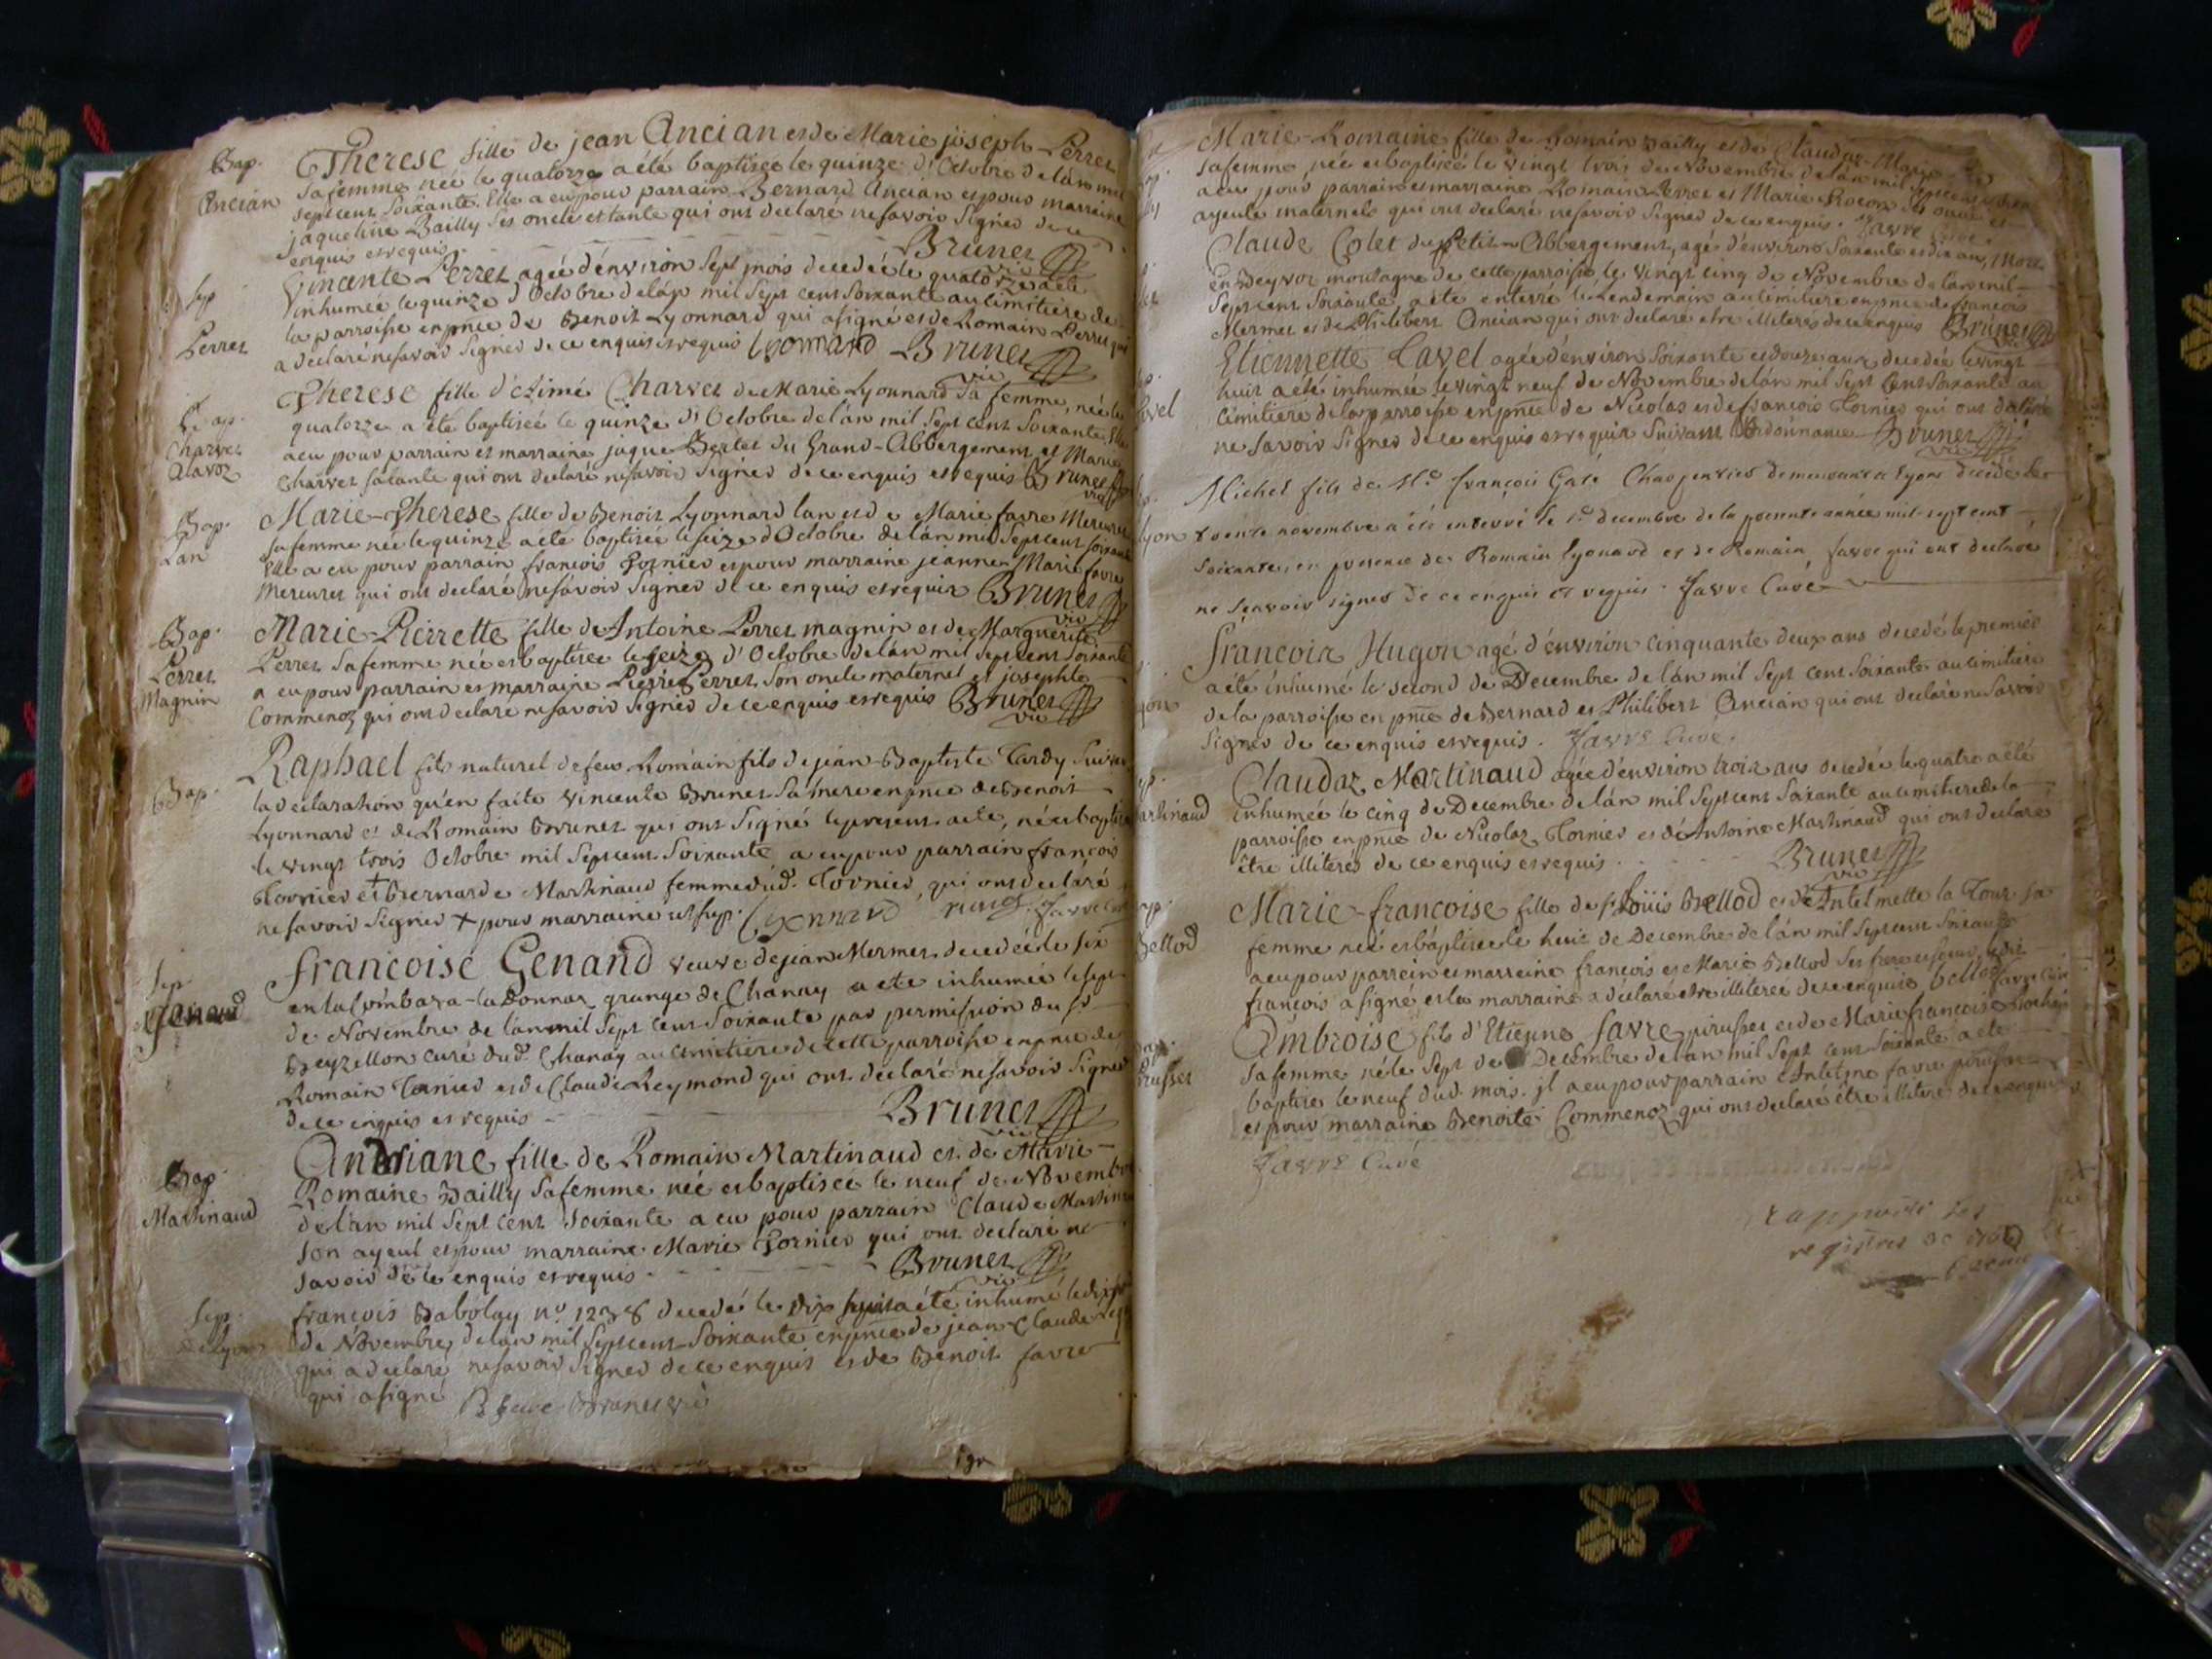 Bap.
Ancian
Therese fille de jean Ancian et de Marie joseph Perret
sa femme née le quatorze a été baptisée le quinze d'Octobre de lán mil
sept cent soixante. Elle a eu pour parrain Bernard Ancian et pour marraine
jaqueline Bailly ses oncle et tante qui ont declaré ne savoir signer de ce
enquis et requis. Brunet vic
Sep
Perret
Vincente Perret agée d'énviron sept mois decedée le quatorze a été
inhumée le quinze d'Octobre de lán mil sept cent soixante au cimitiere de
la parroisse en pnce de Benoit Lyonnard qui a signé et de Romain Perret qui
a declaré ne savoir signer de ce enquis et requis Lyonnard Brunet vic
Bap.
Charvet
Therese fille d'Aimé Charvet de Marie Lyonnard sa femme, née le
quatorze a été baptisée le quinze d'Octobre de lán mil sept cent soixante Elle
a eu pour parrain et marraine jaque Bertet du Grand-Abbergement et Marie
Charvet sa tante qui ont declaré ne savoir signer de ce enquis et requis Brunet vic
Bap.
Lan
Marie-Therese fille de Benoit Lyonnard lan et de Marie favre Mercuret
sa femme née le quinze a été baptisée le seize d'Octobre de lán mil sept cent soixante
Elle a eu pour parrain françois Tornier et pour marraine jeanne Marie favre
Mercuret qui ont declaré ne savoir signer de ce enquis et requis Brunet vic
Bap.
Perret
Magnin
Marie-Pierrette fille de Antoine Perret magnin et de Marguerite
Perret sa femme née et baptisée le seize d'Octobre de lán mil sept cent soixante
a eu pour parrain et marraine Pierre Perret son oncle maternel et josephte
Commenoz qui ont declaré ne savoir signer de ce enquis et requis Brunet vic
Bap.
Raphael fils naturel de feu Romain fils de jean-Baptiste Tardy suivant
la declaration qu'en faite vincente Brunet sa mere en pnce de Benoit
Lyonnard et de Romain Brunet qui ont signé le present acte, né et baptisé
le vingt trois Octobre mil sept cent soixante a eu pour parrain françois
Tornier et + Bernarde Martinaud femme dud. Tornier, qui ont declaré
ne savoir signer + pour marraine ut sup. Lyonnard
Sep
Genand
francoise Genand veuve de jean Mermet decedée le six
en la Combaza-la Donnaz grange de Chanay a été inhumée le sept
de Novembre de lán mil sept cent soixante par permission du sr
Beyzellon curé dud. Chanay au cimitiere de cette parroisse en pnce de
Romain Tornier et de Claude Reymond qui ont declaré ne savoir signer
de ce enquis et requis Brunet vic
Bap
Martinaud
Andriane fille de Romain Martinaud et de Marie-
Romaine Bailly sa femme née et baptisée le neuf de Novembre
de l'an mil sept cent soixante a eu pour parrain Claude Martinaud
son ayeul et pour marraine Marie Tornier qui ont declaré ne
savoir de ce enquis et requis. Brunet vic
Sep.
de lyon
françois Babolay no. 1238 decedé le dix huit a été inhumé le
de Novembre de lan mil sept cent soixante en pnce de jean Claude
qui a declaré ne savoir signer de ce enquis et de Benoit favre
qui a signé B favre Brunet vic
Marie-Romaine fille de Romain Bailly et de Claudaz-Marie
sa femme, née et baptisée le vingt trois de Novembre de lán mil sept cent
a eu pour parrain et marraine Romain Perret et Marie
ayeule maternels qui ont declaré ne savoir signer de ce enquis. favre Curé.
Claude Colet du Petit Abbergement, agé d'énviron soixante et dix ans, Mort
en montagne de cette parroisse, le vingt cinq de Novembre de lan mil
sept cent soixante, a été enterré le Lendemain au cimitiere en pnce de francois
Mermet et de Philibert Ancian qui ont declaré etre illiterés de ce enquis Brunet vic
avel
Etiennette Cavel agée d'énviron soixante et douze ans decedée le vingt
huit a été inhumée le vingt neuf de Novembre de lán mil sept cent soixante au
cimitiere de la parroisse en pnce de Nicolas et de françois Tornier qui ont declaré
ne savoir signer de ce enquis et requis suivant l'ordonnance Brunet vic
lyon
Michel fils de françois Gaté Charpentier demeurant a lyon decedé le
trente novembre a été enterré le 1er decembre de la presente année mil sept cent
soixante, en presence de Romain lyonard et de Romain favre qui ont declaré
ne sçavoir signer de ce enquis et requis. favre Curé
yon
françois Hugon agé d'énviron cinquante deux ans decedé le premier
a été inhumé le second de Decembre de lán mil sept cent soixante au cimitiere
de la parroisse en pnce de Bernard et Philibert Ancian qui ont declaré ne savoir
signer de ce enquis et requis. favre Curé.
artinaud
Claudaz Martinaud agée d'énviron trois ans decedée le quatre a été
inhumée le cinq de Decembre de lán mil sept cent soixante au cimitiere de la
parroisse en pnce de Nicolas Tornier et de Antoine Martinaud qui ont declaré
être illiterés de ce enquis et requis Brunet vic
Bellod
Marie-francoise fille de sr. Loüis Bellod et de Antelmette la Tour sa
femme née et baptisée le huit de Decembre de lán mil sept cent soixante
a eu pour parrein et marreine françois et Marie Bellod ses frere et soeur, ledit
françois a signé et la marraine a declaré etre illiterée de ce enquise bellod favre Curé
Pirusset
Ambroise fils d'Etienne favre pirusset et de Marie francoise
sa femme né le sept de Decembre de lán mil sept cent soixante a été
baptisé le neuf dud. mois. jl a eu pour parrain Antelme favre pirusset
et pour marraine Benoite Commenoz qui ont declaré être illiteré de ce enquis
favre Curé
rapporté les
registres de